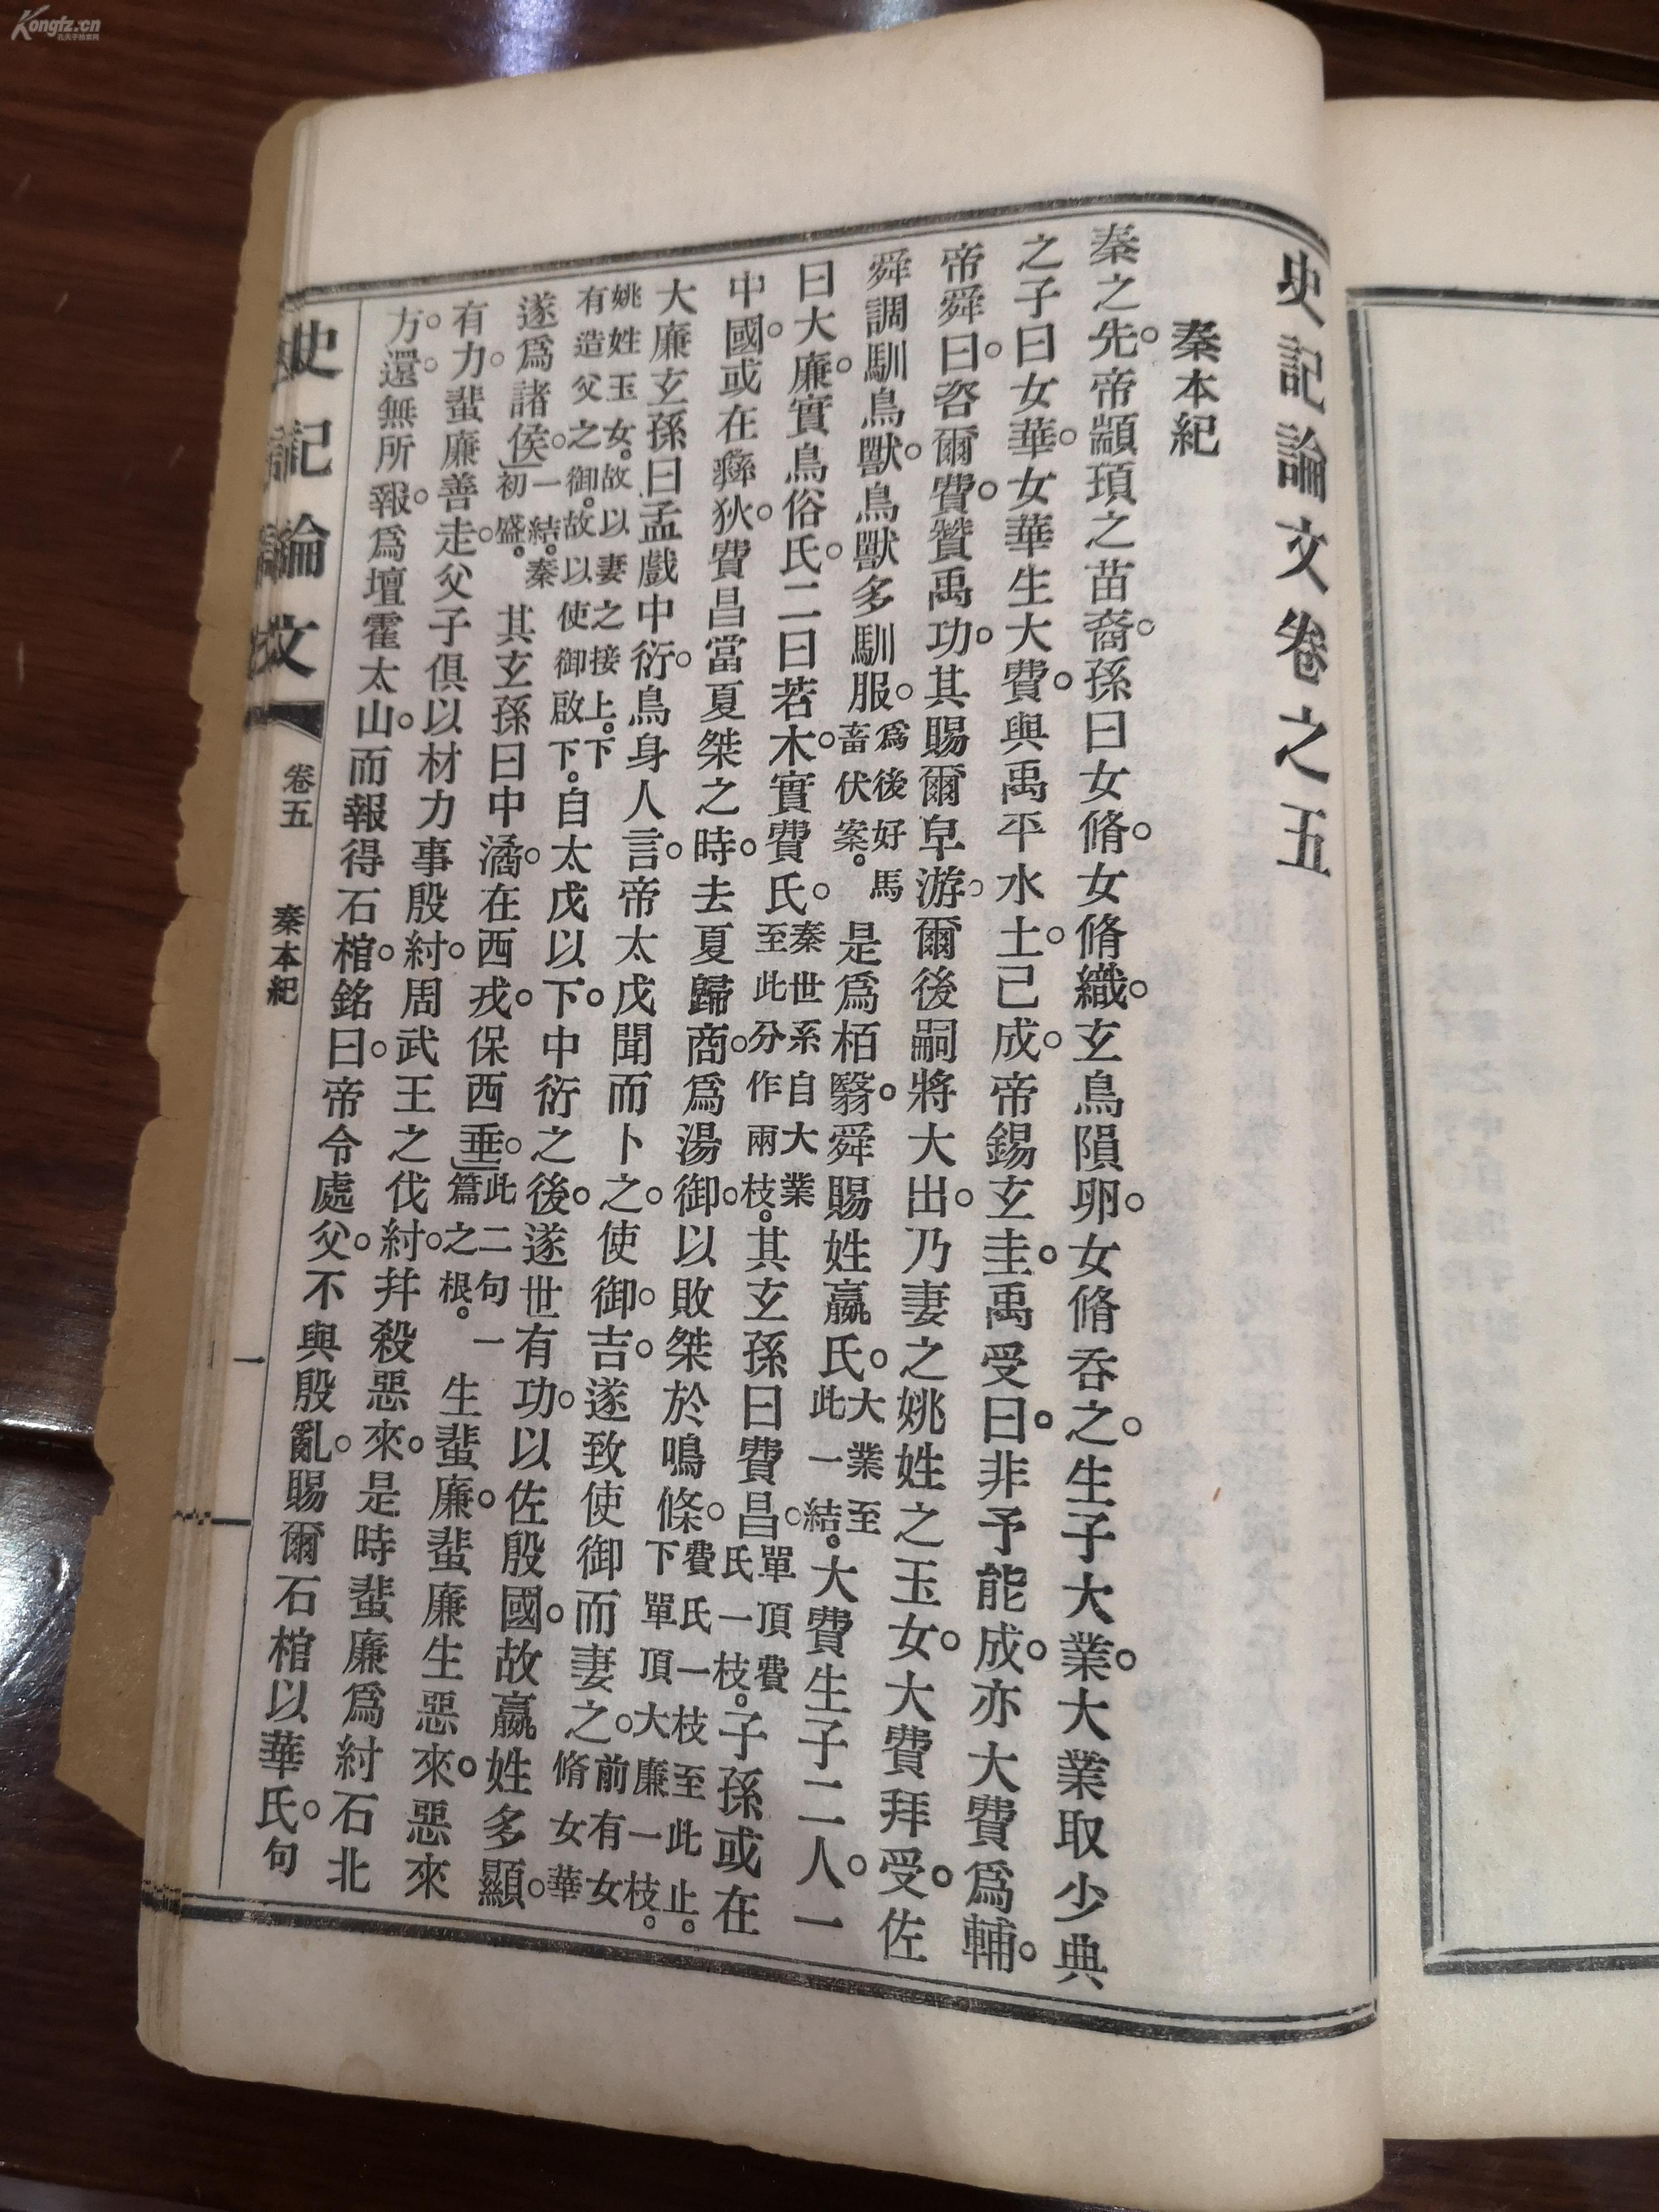 史記論文卷之五
秦本紀
秦之先。帝顓頊之苗裔。孫曰女脩。女脩織。玄鳥隕卵。女脩吞之。生子大業。大業取少典
之子曰女華。女華生大費。與禹平水土。已成。帝錫玄圭。禹受曰。非予能成。亦大費爲輔。
帝舜曰。咨爾費。贊禹功。其賜爾皁游。爾後嗣將大出。乃妻之姚姓之玉女。大費拜受。佐
舜調馴鳥獸。鳥獸多馴服。爲後好馬畜伏案。是爲栢翳。舜賜姓嬴氏。大業至此一結。大費生子二人。一
曰大廉。實鳥俗氏。二曰若木。實費氏。秦世系自大業至此分作兩枝。其玄孫曰費昌。單頂費氏一枝。子孫或在
中國。或在彝狄。費昌當夏桀之時。去夏歸商。爲湯御。以敗桀於鳴條。費氏一枝至此止。下單頂大廉一枝。
大廉玄孫曰孟戲中衍。鳥身人言。帝太戊聞而卜之。使御。吉。遂致使御而妻之。前有女脩女華
姚姓玉女。故以妻之接上。下有造父之御。故以使御啟下。自太戊以下。中衍之後。遂世有功。以佐殷國。故嬴姓多顯。
遂爲諸侯。一結。秦初盛。其玄孫曰中潏。在西戎。保西垂。此二句一篇之根。生蜚廉。蜚廉生惡來。惡來
有力。蜚廉善走。父子俱以材力事殷紂。周武王之伐紂。并殺惡來。是時蜚廉爲紂石北
方。還。無所報。爲壇霍太山。而報得石棺。銘曰。帝令處父。不與殷亂。賜爾石棺以華氏。句
史記論文
卷五
秦本紀
一
Kongfz.cn